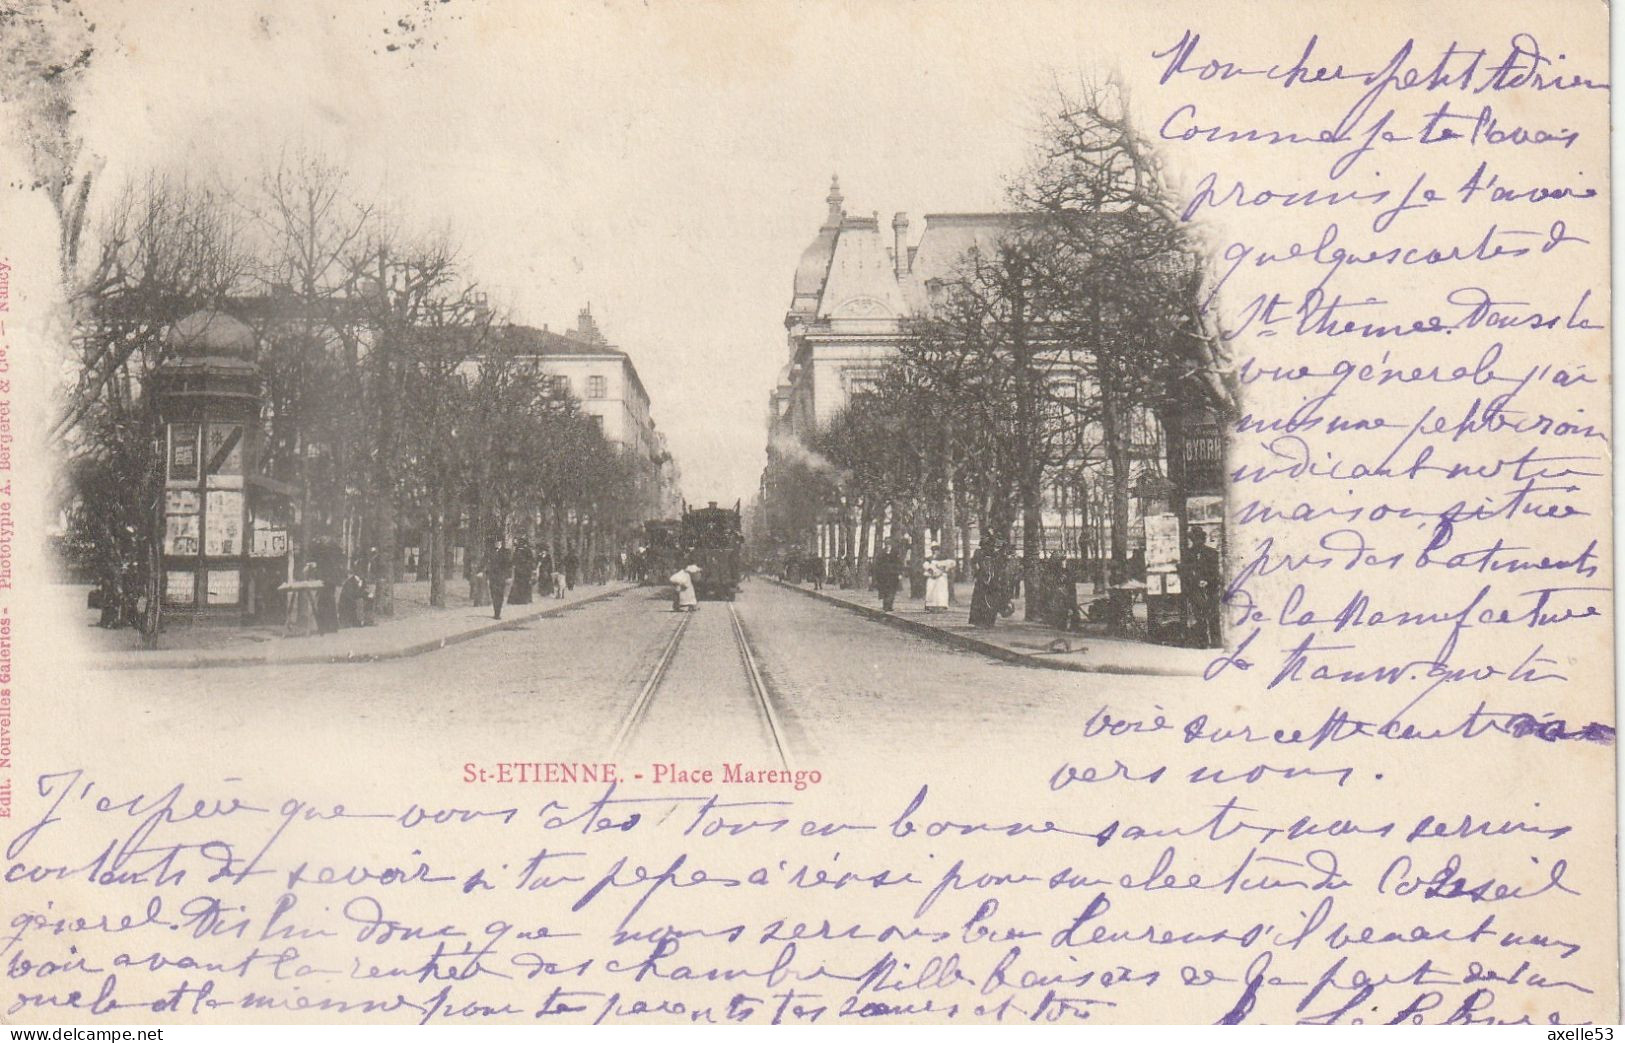 Mon cher petit Adrien
Comme je te l'avais
promis je t'avoie
quelques cartes d
St Ethienee. Dans la
vue générale j'ai
mis une petite croix
indicant notre
maison située
pres des batiments
de la Manufacture
Le tramw. que tu
voie sur cette carte
vers nous.
BYRRH
St-ETIENNE. - Place Marengo
Edit. Nouvelles Galeries - Phototypie A. Bergeret & Cie. — Nancy.
J'espère que vous êtes tous en bonne sante, nous serions
contents de savoir si ton pepe a réussi pour son election du Conseil
géneral. Dis lui donc que nous serions bien heureux s'il venait nous
voir avant la rentrée des chambre Mille baisers de la part de ton
oncle et la mienne pour tes parents tes soeurs et toi
axelle53